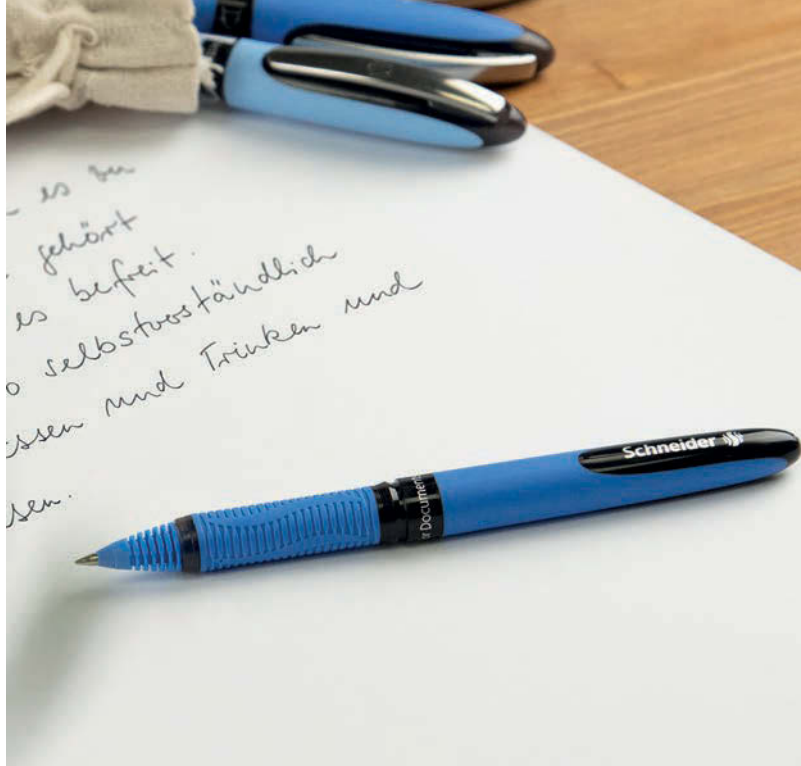 es zu
gehört
es befreit.
selbstverständlich
ssen und Trinken und
sen.
Schneider
or Document